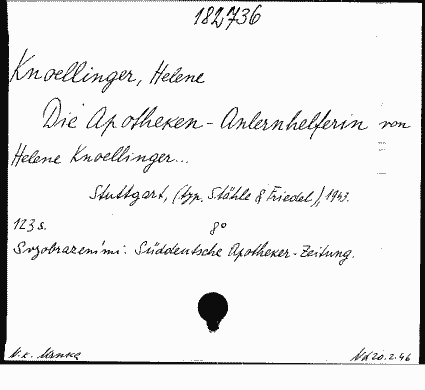 182736
Knoellinger, Helene
Die Apotheken-Anlernhelferin von
Helene Knoellinger...
Stuttgart, (typ. Stähle & Friedel), 1943.
123 s. 8°
S vyobrazeními. Süddeutsche Apotheker-Zeitung.
N.k.
Nd 20.2.46